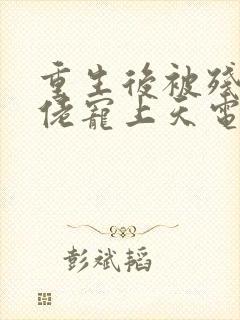 重生後被殘
佬寵上天電
彭斌韜